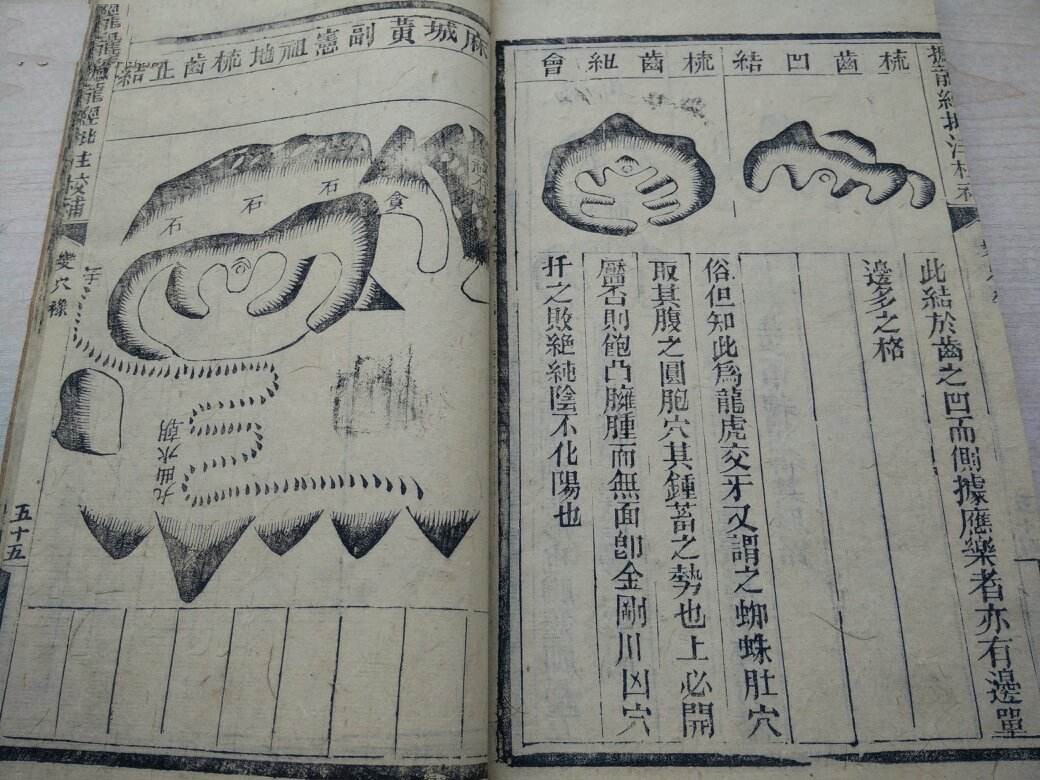 撼龍經批注校補
梳齒凹結
梳齒紐會
此結於齒之凹而側據應樂者亦有邊單
邊多之格
俗但知此爲龍虎交牙又謂之蜘蛛肚穴
取其腹之圓胞穴其鍾蓄之勢也上必開
靨否則飽凸臃腫而無面卽金剛川凶穴
扦之敗絶純陰不化陽也
麻城黃副憲祖地梳齒正結
石
石
石
倉
九曲水朝
撼龍經批注校補
變穴
五十五